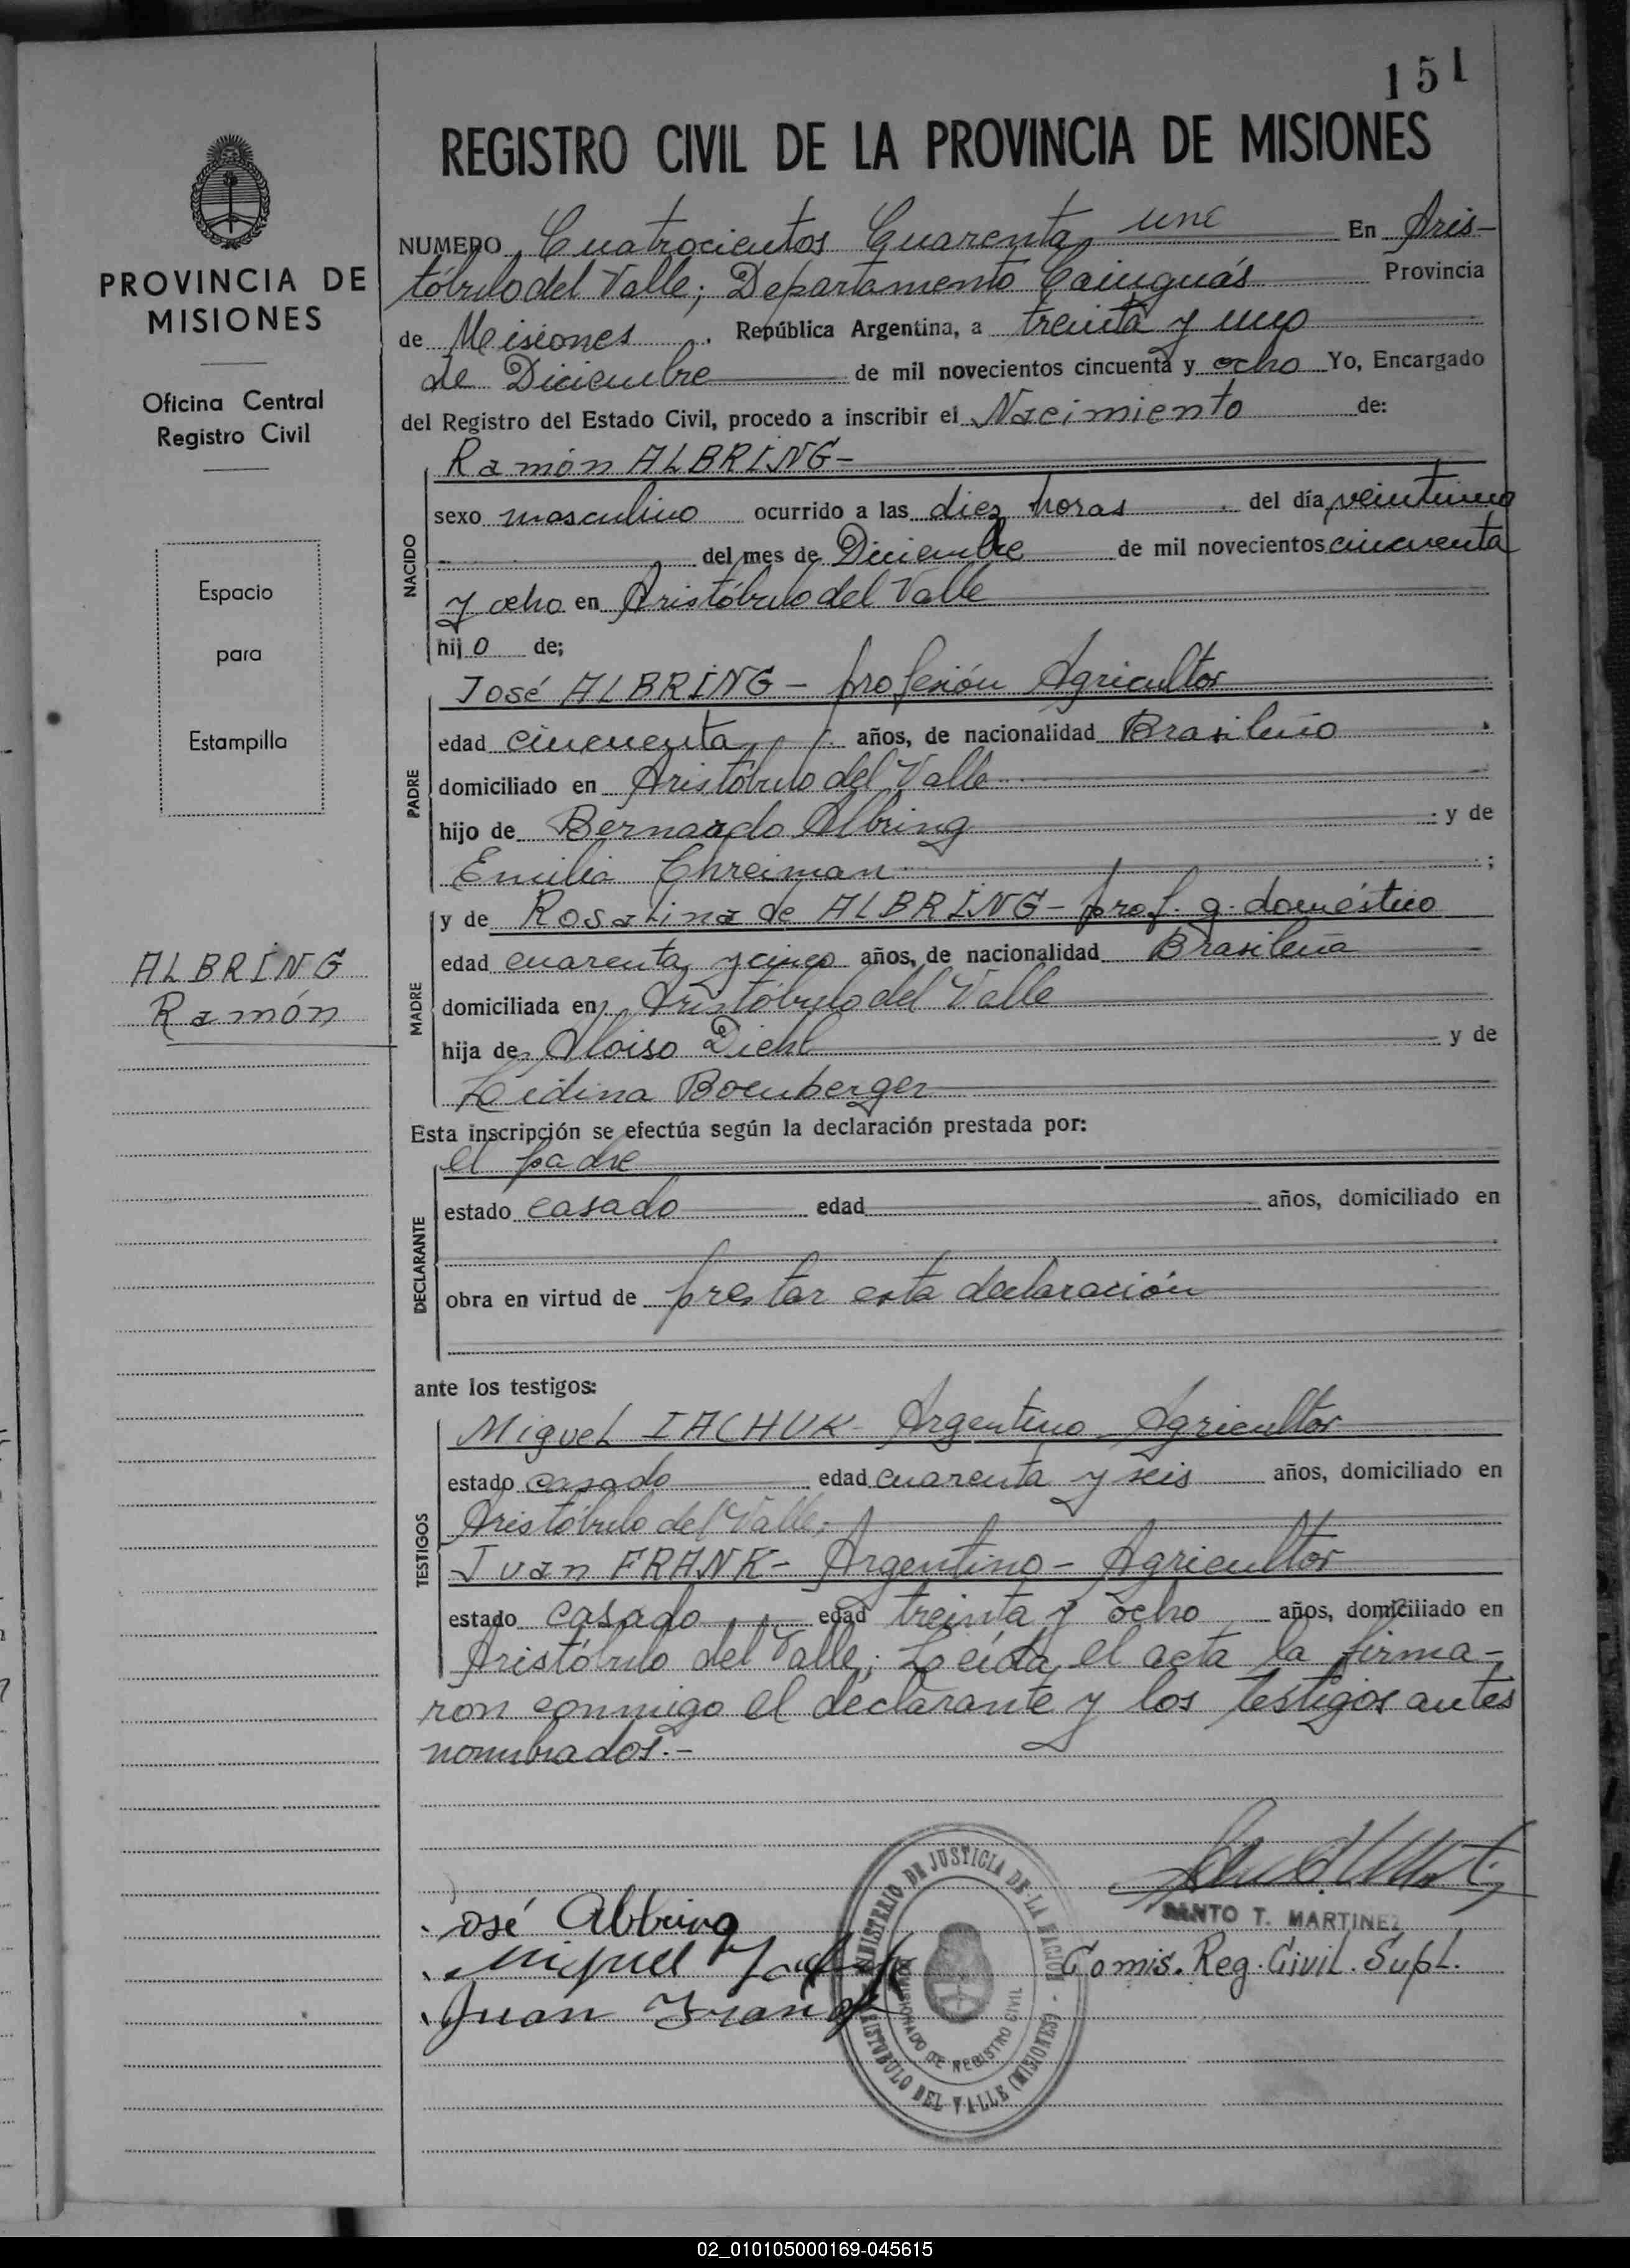 151
REGISTRO CIVIL DE LA PROVINCIA DE MISIONES
PROVINCIA DE
MISIONES
Oficina Central
Registro Civil
Espacio
para
Estampilla
ALBRING
Ramón
NUMERO Cuatrocientos Cuarenta uno En Aris-
tóbulo del Valle; Departamento Cainguás Provincia
de Misiones. República Argentina, a treinta y uno
de Diciembre de mil novecientos cincuenta y ocho Yo, Encargado
del Registro del Estado Civil, procedo a inscribir el Nacimiento de:
NACIDO
Ramón ALBRING-
sexo masculino ocurrido a las diez horas. del día veintiuno
del mes de Diciembre de mil novecientos cincuenta
y ocho en Aristóbulo del Valle
hijo de;
PADRE
José ALBRING - profesión Agricultor
edad cincuenta años, de nacionalidad Brasileño
domiciliado en Aristóbulo del Valle
hijo de Bernardo Albring y de
Emilia Chreiman ;
MADRE
y de Rosalina de ALBRING- prof. q. doméstico
edad cuarenta y cinco años, de nacionalidad Brasileña
domiciliada en Aristóbulo del Valle
hija de Aloiso Diehl y de
Leidina
Esta inscripción se efectúa según la declaración prestada por:
DECLARANTE
el padre
estado casado edad años, domiciliado en
obra en virtud de prestar esta declaración
ante los testigos:
TESTIGOS
Miguel IACHUK- Argentino Agricultor
estado casado edad cuarenta y seis años, domiciliado en
Aristóbulo del Valle;
Juan FRANK- Argentino- Agricultor
estado casado edad treinta y ocho años, domiciliado en
Aristóbulo del Valle; Leída el acta la firma-
ron conmigo el declarante y los testigos antes
nombrados.-
José Albring
Miguel
Juan Frank
SANTO T. MARTINEZ
Comis. Reg. Civil. Supl.
MINISTERIO DE JUSTICIA DE LA NACION - ARISTOBULO DEL VALLE (MISIONES)
COMISIONADO DE REGISTRO CIVIL
02_010105000169-045615